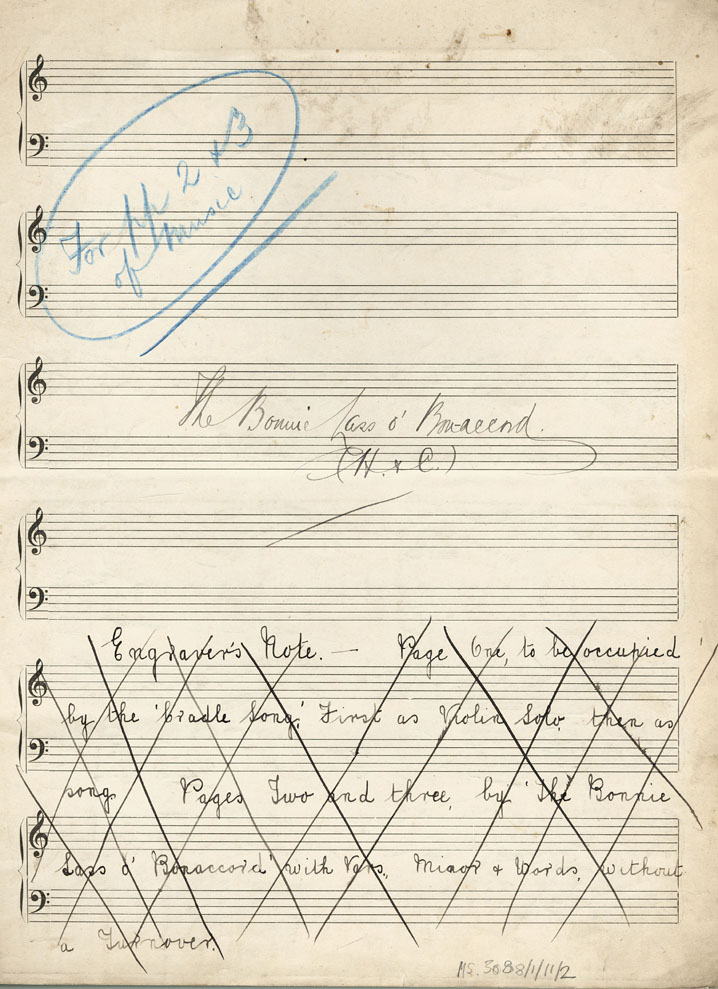 For pp 2 & 3
of music
The Bonnie Lass o' Bon-accord.
(H. & C.)
Engraver's Note. — Page One, to be occupied
by the 'Cradle Song', First as Violin Solo, then as
song. Pages Two and three, by 'The Bonnie
Lass o' Bonaccord' with Vars., Minor & Words, without
a Turnover.
MS. 3088/1/11/2